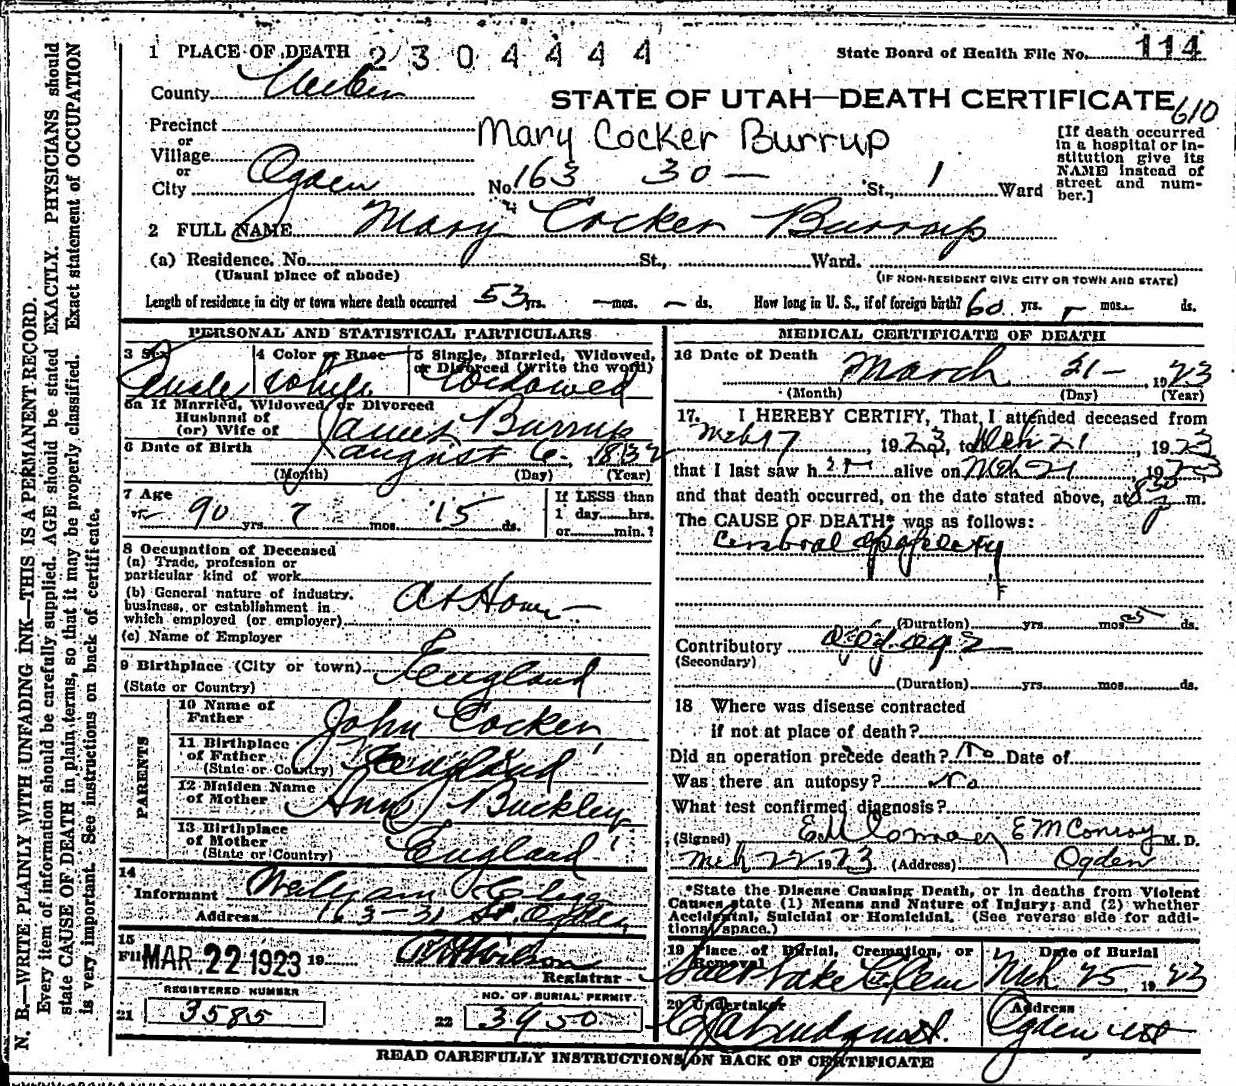 1 PLACE OF DEATH 2304444 State Board of Health File No. 114
County Weber
STATE OF UTAH—DEATH CERTIFICATE 610
Precinct
or
Village
or
City Ogden No. 163 30 — St., 1 Ward
Mary Cocker Burrup
[If death occurred in a hospital or institution give its NAME instead of street and number.]
2 FULL NAME Mary Cocker Burrup
(a) Residence. No. St., Ward.
(Usual place of abode) (IF NON-RESIDENT GIVE CITY OR TOWN AND STATE)
Length of residence in city or town where death occurred 53 yrs. — mos. — ds. How long in U. S., if of foreign birth? 60 yrs. - mos. ds.
PERSONAL AND STATISTICAL PARTICULARS
3 Sex Female
4 Color or Race White
5 Single, Married, Widowed, or Divorced (write the word) Widowed
6a If Married, Widowed or Divorced
Husband of
(or) Wife of James Burrup
6 Date of Birth August 6, 1832
(Month) (Day) (Year)
7 Age
90 yrs. 7 mos. 15 ds.
If LESS than
1 day hrs.
or min.?
8 Occupation of Deceased
(a) Trade, profession or
particular kind of work
(b) General nature of industry,
business, or establishment in
which employed (or employer) At Home
(c) Name of Employer
9 Birthplace (City or town)
(State or Country) England
PARENTS
10 Name of
Father John Cocker
11 Birthplace
of Father
(State or Country) England
12 Maiden Name
of Mother Ann Buckley
13 Birthplace
of Mother
(State or Country) England
14
Informant
Address 163-30 St. Ogden
15
Filed MAR 22 1923 19
Registrar
REGISTERED NUMBER
21 3585
NO. OF BURIAL PERMIT
22 3950
MEDICAL CERTIFICATE OF DEATH
16 Date of Death March 21 - , 1923
(Month) (Day) (Year)
17. I HEREBY CERTIFY, That I attended deceased from
Mch 17 1923, to Mch 21, 1923
that I last saw her alive on Mch 21 1923
and that death occurred, on the date stated above, at m.
The CAUSE OF DEATH* was as follows:
Cerebral Apoplexy
(Duration) yrs. mos. 5 ds.
Contributory Old age
(Secondary)
(Duration) yrs. mos. ds.
18 Where was disease contracted
if not at place of death?
Did an operation precede death? No Date of
Was there an autopsy? No
What test confirmed diagnosis?
(Signed) E M Conroy E M Conroy M. D.
Mch 22 1923 (Address) Ogden
*State the Disease Causing Death, or in deaths from Violent
Causes, state (1) Means and Nature of Injury; and (2) whether
Accidental, Suicidal or Homicidal. (See reverse side for additional space.)
19 Place of Burial, Cremation, or
Removal Salt Lake Cem
Date of Burial
Mch 25 1923
20 Undertaker
Address
Ogden Ut
READ CAREFULLY INSTRUCTIONS ON BACK OF CERTIFICATE
N. B.—WRITE PLAINLY WITH UNFADING INK—THIS IS A PERMANENT RECORD.
Every item of information should be carefully supplied. AGE should be stated EXACTLY. PHYSICIANS should
state CAUSE OF DEATH in plain terms, so that it may be properly classified. Exact statement of OCCUPATION
is very important. See instructions on back of certificate.